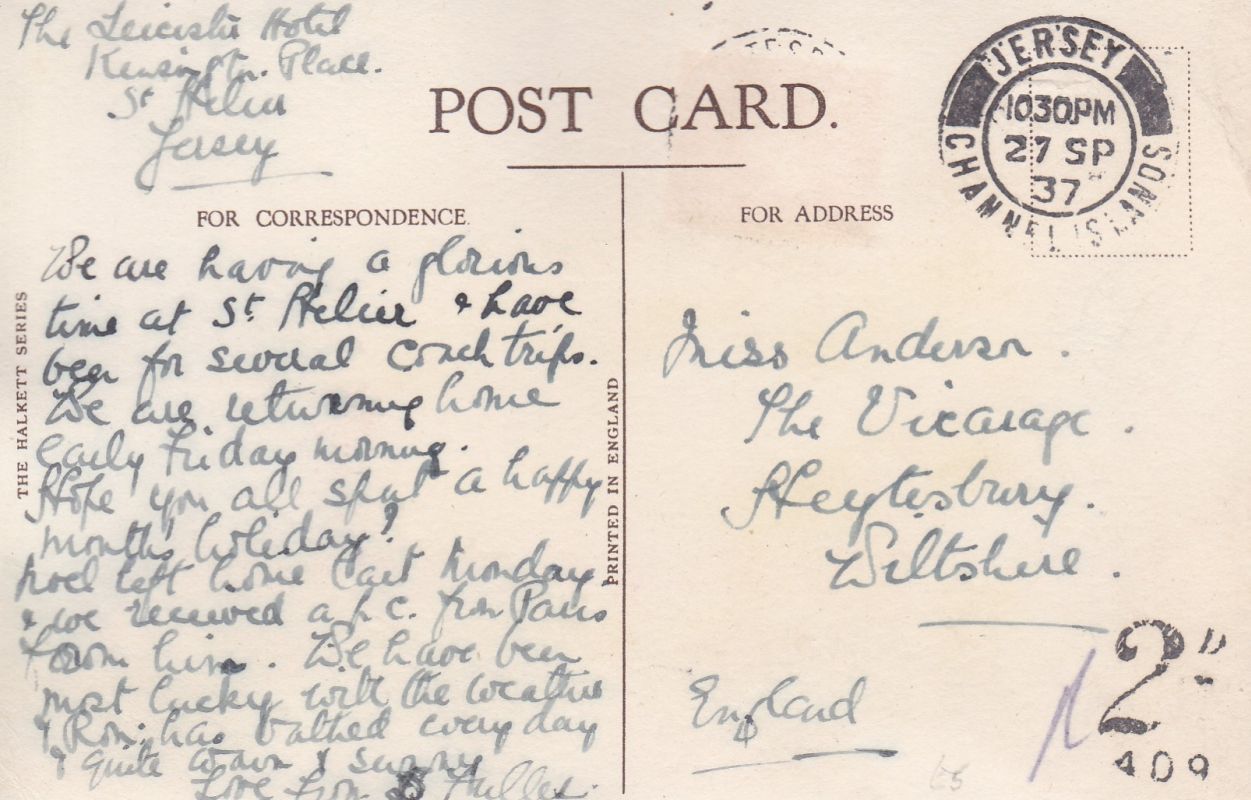 The Leicester Hotel
Kensington Place.
St Helier
Jersey
POST CARD.
JERSEY
10.30PM
27 SP
37
CHANNEL ISLANDS
FOR CORRESPONDENCE
FOR ADDRESS
We are having a glorious
time at St. Helier & have
been for several coach trips.
We are returning home
early Friday morning.
Hope you all spent a happy
months holiday?
Noel left home last Monday
& we received a p.c. from Paris
from him. We have been
most lucky with the weather
& has bathed every day
& quite warm & sunny
Love from
THE HALKETT SERIES
PRINTED IN ENGLAND
Miss Anderson.
The Vicarage.
Heytesbury.
Wiltshire.
England
2D
409
65